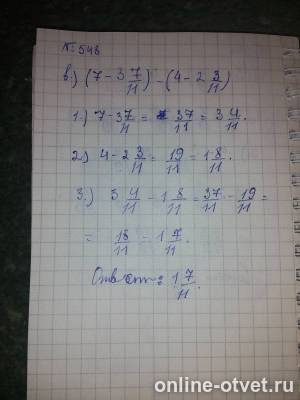 № 548
в.) (7 - 3 7/11) - (4 - 2 3/11)
1.) 7 - 3 7/11 = 37/11 = 3 4/11.
2.) 4 - 2 3/11 = 19/11 = 1 8/11.
3.) 3 4/11 - 1 8/11 = 37/11 - 19/11 =
= 18/11 = 1 7/11.
Ответ: 1 7/11.
online-otvet.ru